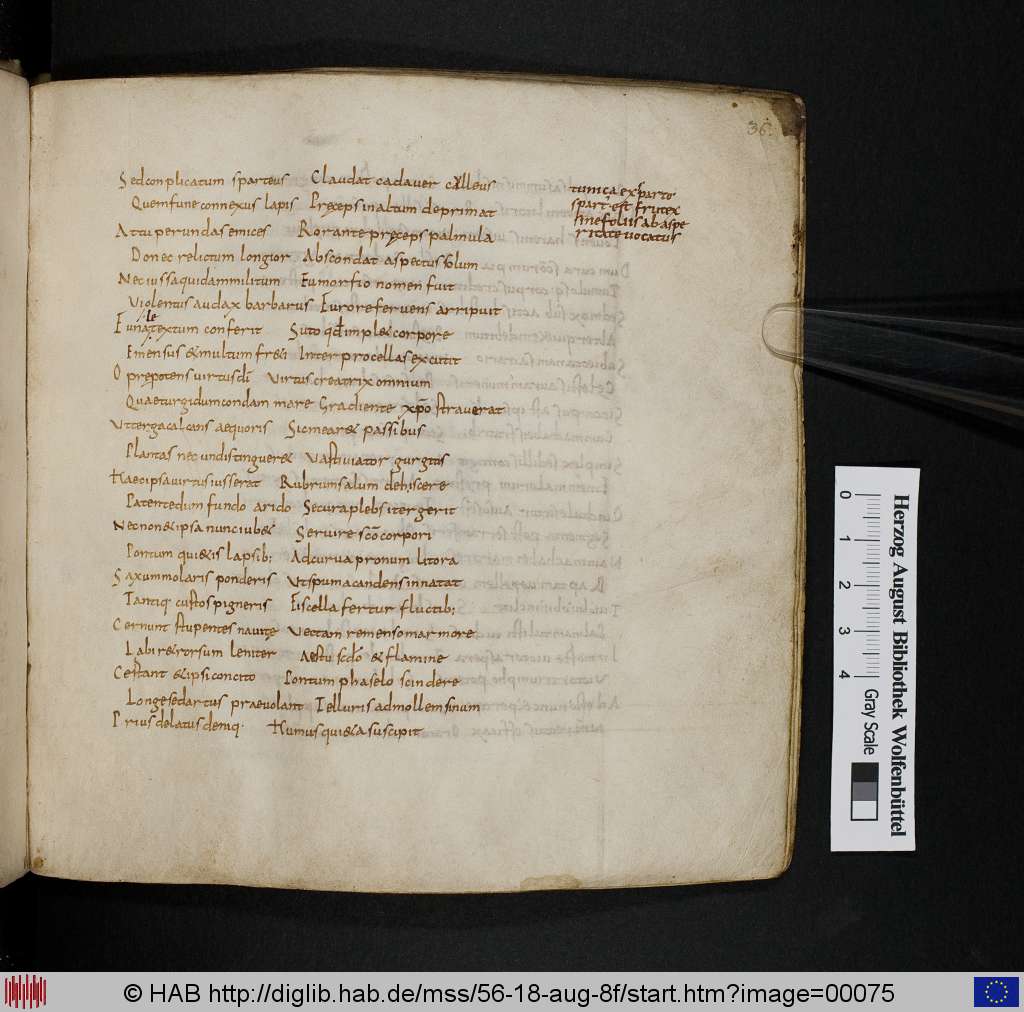 36.
Sed conplicatum sparteus Claudat cadaver culleus
Quem fune connexus lapis Pręceps in altum deprimat
At tu per undas emices Rorante pręceps palmula
Donec relictum longior Abscondat aspectus solum
Nec iussa quidam militum Eumorfio nomen fuit
Violentus audax barbarus Furore fervens arripuit
Funale textum conferit Suto qđ implet corpore
Emensus et multum freti Inter procellas excutit
O prepotens virtus dī Virtus creatrix omnium
Quae turgidum condam mare Gradiente xp̄o straverat
Ut terga calcans aequoris Sic mearet passibus
Plantas nec undis tingueret Vasti viator gurgitis
Haec ipsa virtus iusserat Rubrum salum dehiscere
Patente dum fundo arido Secura plebs iter gerit
Nec non et ipsa nunc iubet Servire scō corpori
Pontum quietis lapsib; Ad curva pronum litora
Saxum molaris ponderis Ut spuma candens innatat
Tantiq; custos pigneris Fiscella fertur fluctib;
Cernunt stupentes navitę Vectam remenso marmore
Labi retrorsum leniter Aestu scđo et flamine
Certant et ipsi concito Pontum phaselo scindere
Longe sed artus praevolant Telluris ad mollem sinum
Prius delatus deniq; Humus quieta suscipit
tunica ex sparto
spart; est frutex
sine foliis ab aspe
ritate vocatus
Herzog August Bibliothek Wolfenbüttel
0 1 2 3 4 Gray Scale
© HAB http://diglib.hab.de/mss/56-18-aug-8f/start.htm?image=00075